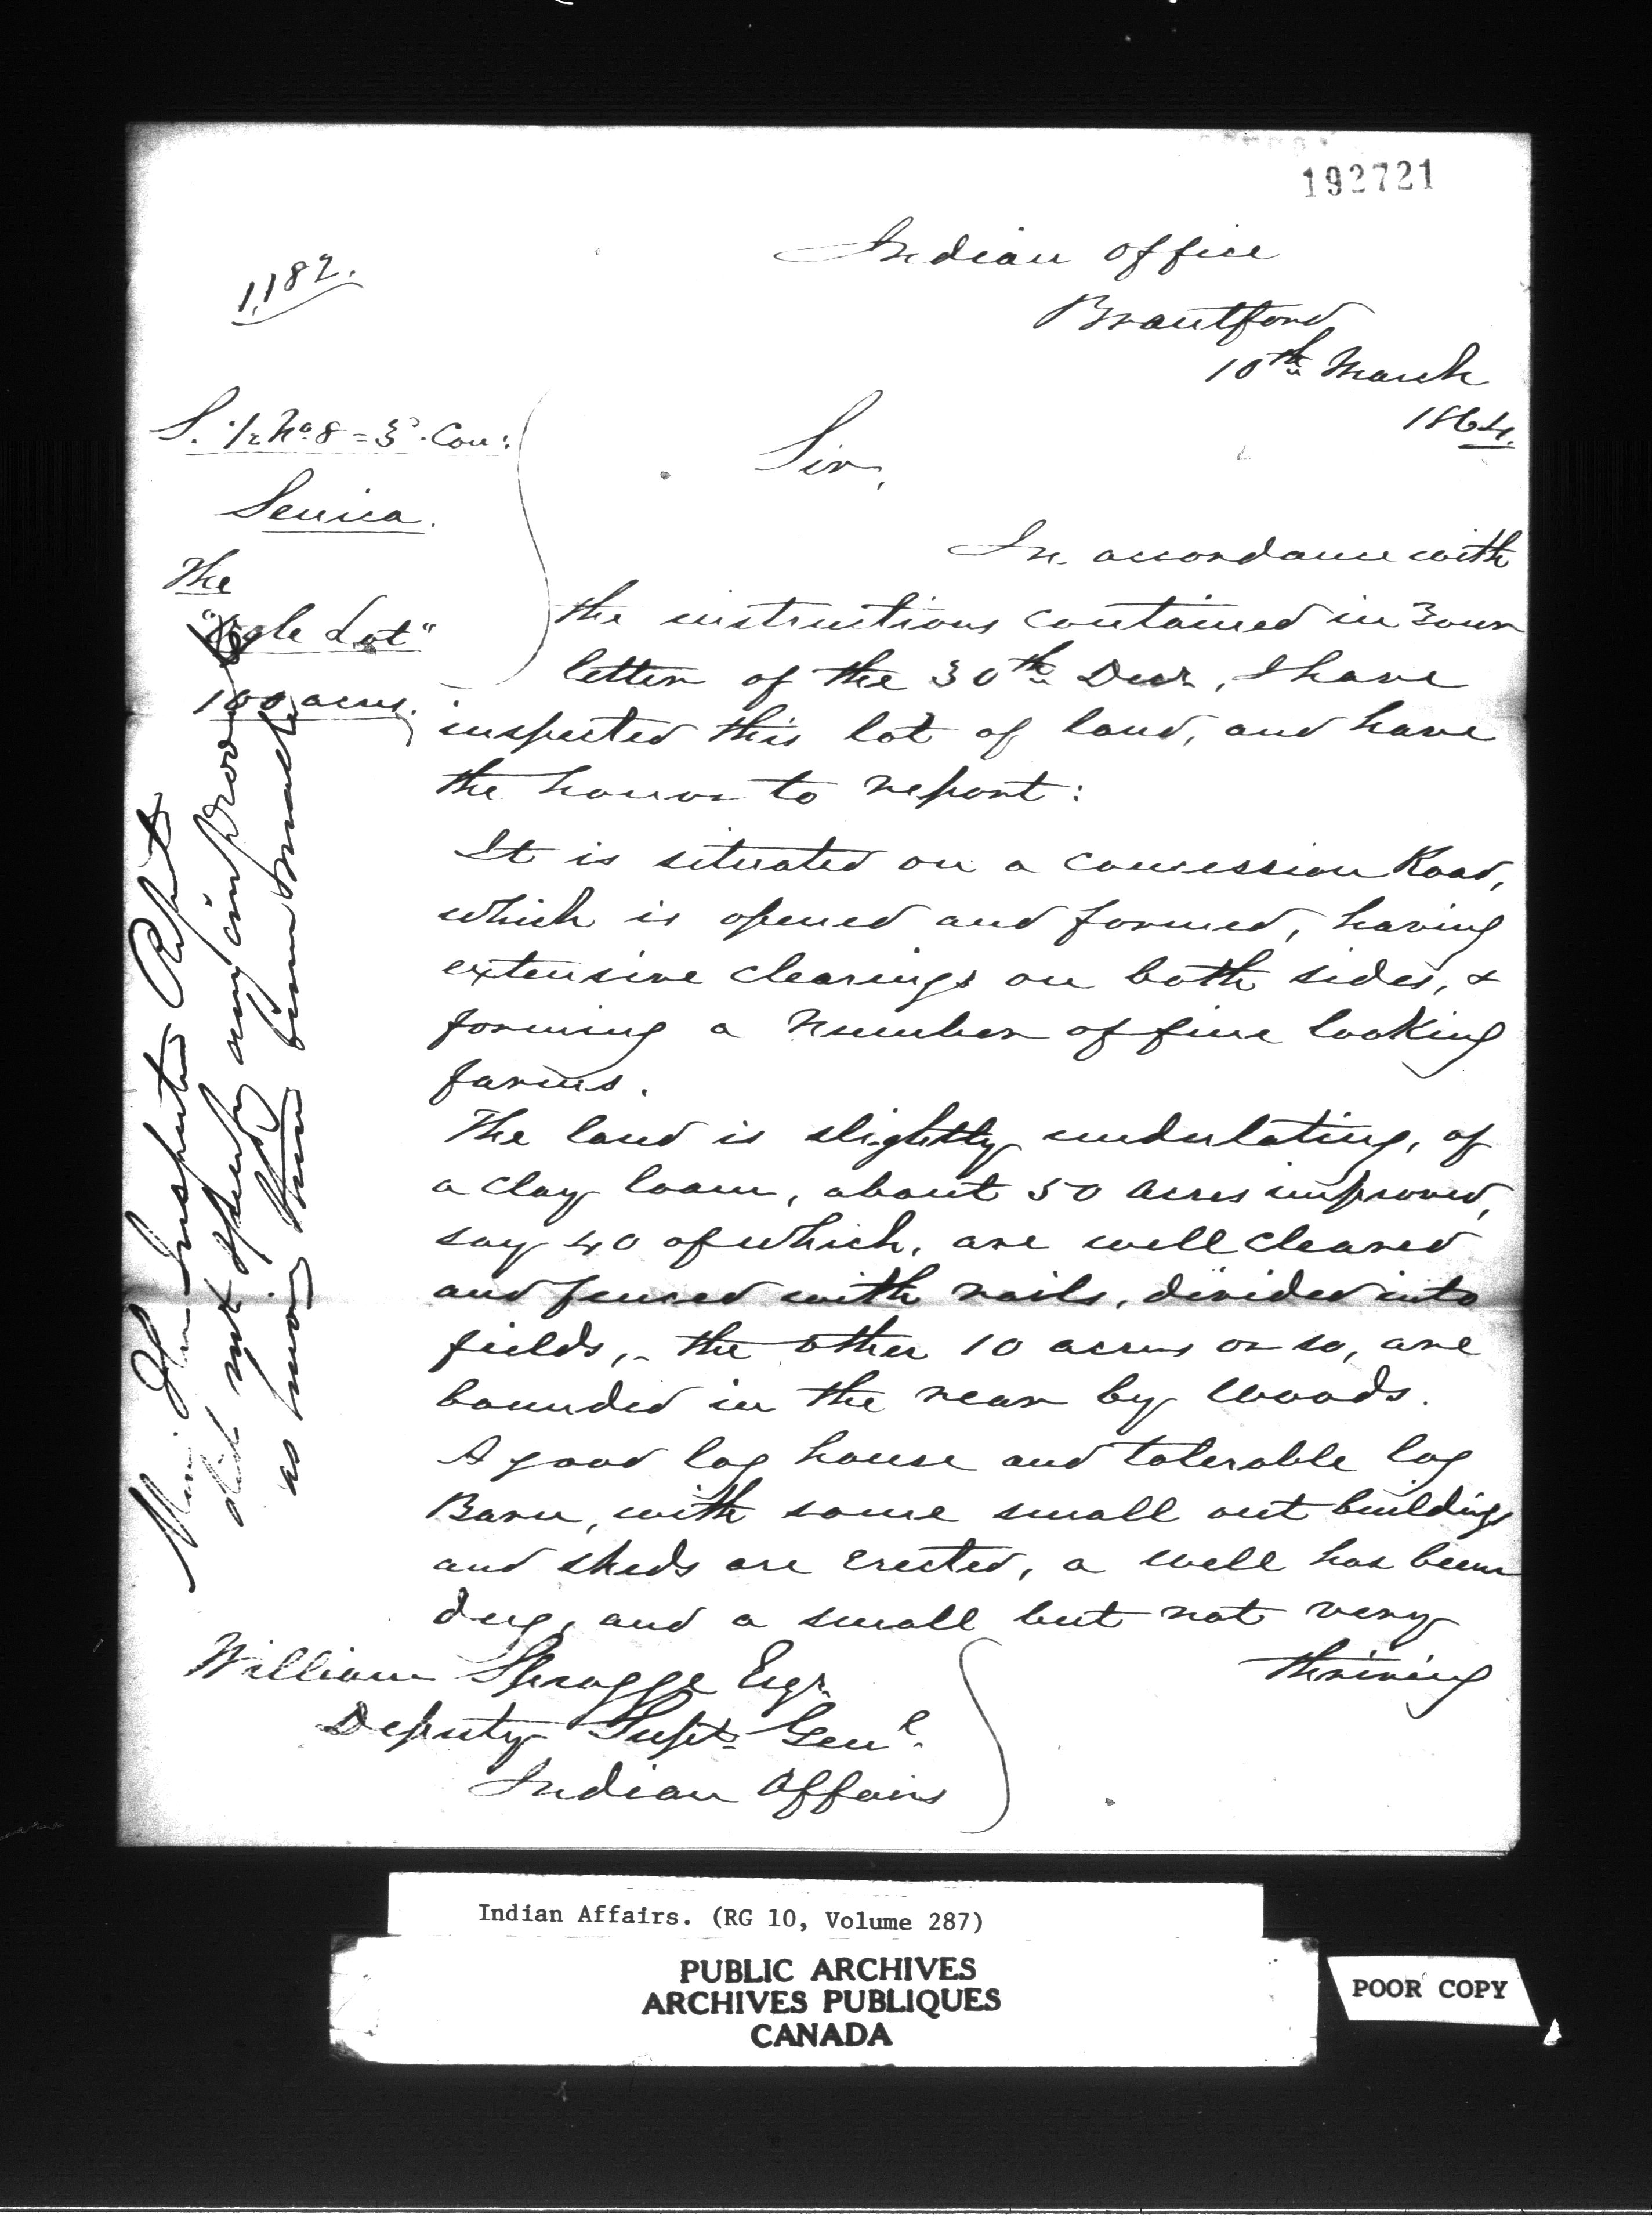 192721
1,182.
Indian Office
Brantford
10th March
1864.
S. 1/2 No 8 = 3d. Con:
Seneca.
The
Lot"
100 acres.
Sir,
In accordance with
the instructions contained in Your
letter of the 30th Decr, I have
inspected this lot of land, and have
the honor to report:
It is situated on a concession Road,
which is opened and formed, having
extensive clearings on both sides, &
forming a number of fine looking
farms.
The land is slightly undulating, of
a clay loam, about 50 acres improved,
say 40 of which, are well cleared
and fenced with rails, divided into
fields, - the other 10 acres or so, are
bounded in the rear by woods.
A good log house and tolerable log
Barn, with some small out buildings
and sheds are erected, a well has been
dug, and a small but not very
thriving
William Spragge Esqr.
Deputy Supt. Genl.
Indian Affairs
Inspection Report
did not specify any improvements
as having been made
Indian Affairs. (RG 10, Volume 287)
PUBLIC ARCHIVES
ARCHIVES PUBLIQUES
CANADA
POOR COPY